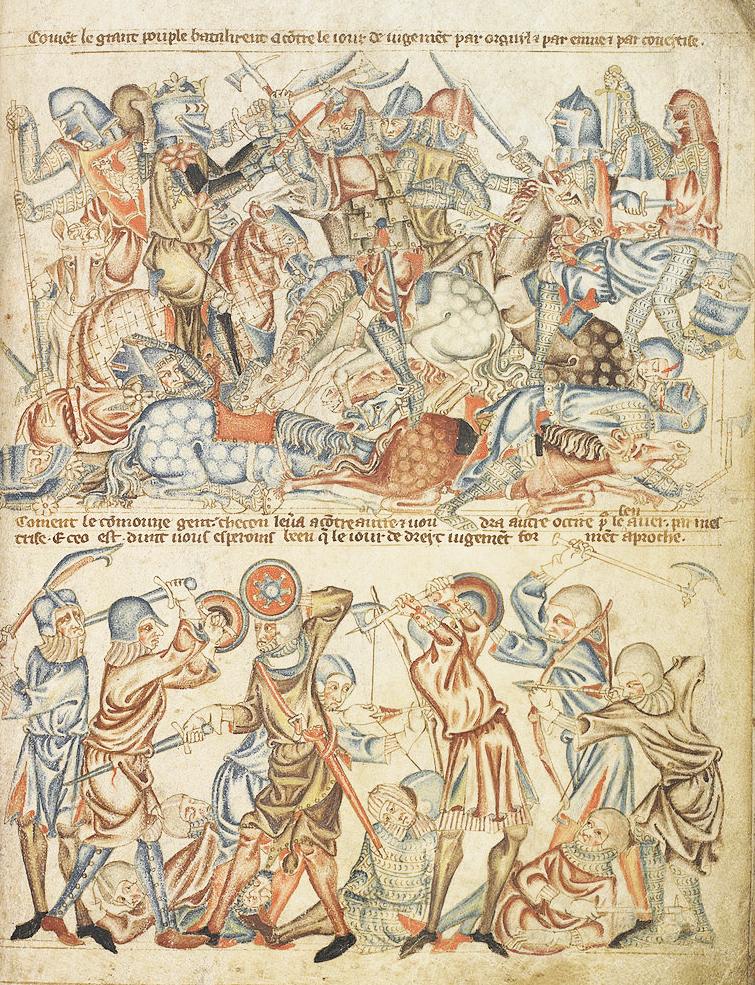 Coment le grant pouple bataillerent acōtre le iour de iugemēt par orguyl ⁊ par enuie ⁊ par coueytise.
Coment le cōmoune gent. checon leūa acōtre autre ⁊ uou dra autre occire p̄ le sen auer. pu mes
trise. E ceo est dunt nous esperoms been q̄ le iour de dreyt iugemēt for mēt aproche.